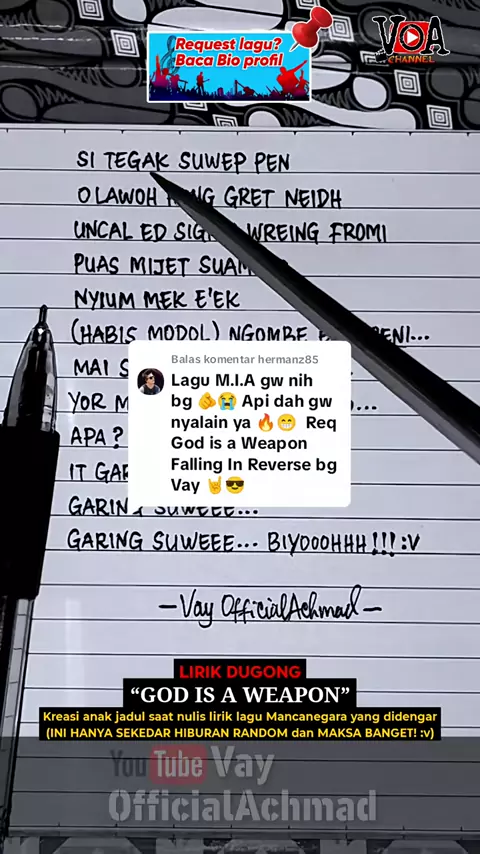 Request lagu?
Baca Bio profil
VOA
CHANNEL
SI TEGAK SUWEP PEN
OLAWOH GRET NEIDH
UNCAL ED WREING FROMI
PUAS MIJET
NYIUM MEK E'EK
(HABIS MODOL) NGOMBE
MAI
YOR
APA?
IT
GARING SUWEEE...
GARING SUWEEE... BIYOOOHHH!!! :V
Balas komentar hermanz85
Lagu M.I.A gw nih
bg 🫵😭 Api dah gw
nyalain ya 🔥😁 Req
God is a Weapon
Falling In Reverse bg
Vay 🤘😎
-Vay OfficialAchmad-
LIRIK DUGONG
“GOD IS A WEAPON”
Kreasi anak jadul saat nulis lirik lagu Mancanegara yang didengar
(INI HANYA SEKEDAR HIBURAN RANDOM dan MAKSA BANGET! :v)
YouTube Vay
OfficialAchmad